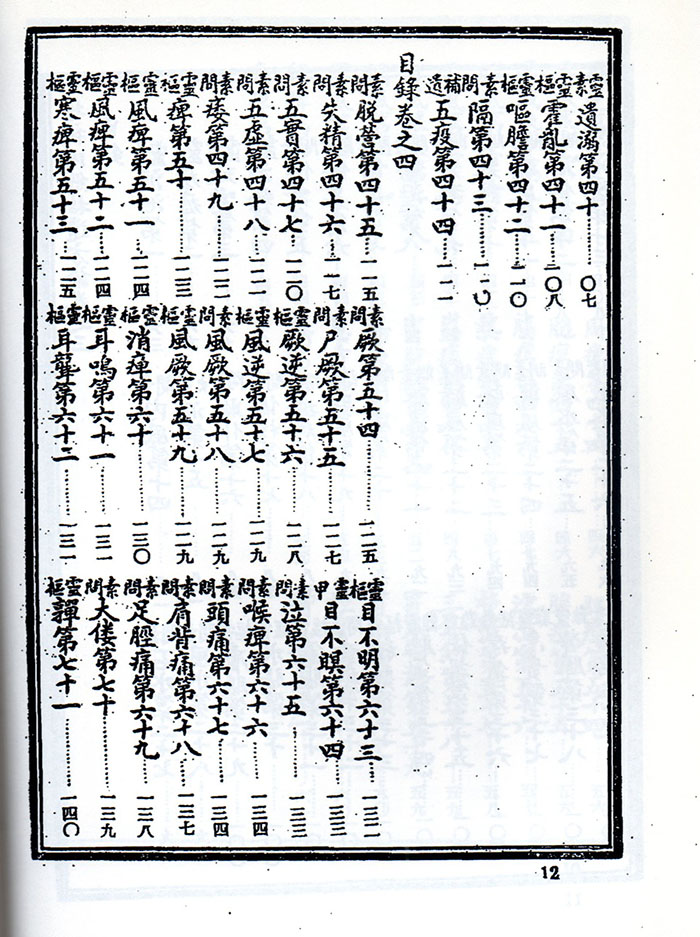 靈素 遺溺第四十……〇七
靈樞 霍亂第四十一……一〇八
靈樞 嘔膽第四十二……一一〇
素問 隔第四十三……一一〇
補遺 五疫第四十四……一一一
目錄卷之四
素問 脱營第四十五……一一五
素問 失精第四十六……一一七
素問 五實第四十七……一二〇
素問 五虛第四十八……一二一
素問 痿第四十九……一二二
靈樞 痺第五十……一二三
靈樞 風痺第五十一……一二四
靈樞 風痺第五十二……一二四
靈樞 寒痺第五十三……一二五
素問 厥第五十四……一二五
素問 尸厥第五十五……一二七
靈樞 厥逆第五十六……一二八
靈樞 風逆第五十七……一二九
素問 風厥第五十八……一二九
靈樞 風厥第五十九……一二九
靈樞 消痺第六十……一三〇
靈樞 耳鳴第六十一……一三一
靈樞 耳聾第六十二……一三一
靈樞 目不明第六十三……一三二
靈甲 目不瞑第六十四……一三三
素問 泣第六十五……一三三
素問 喉痺第六十六……一三四
素問 頭痛第六十七……一三四
素問 肩背痛第六十八……一三七
素問 足脛痛第六十九……一三八
素問 大僂第七十……一三九
靈樞 第七十一……一四〇
12